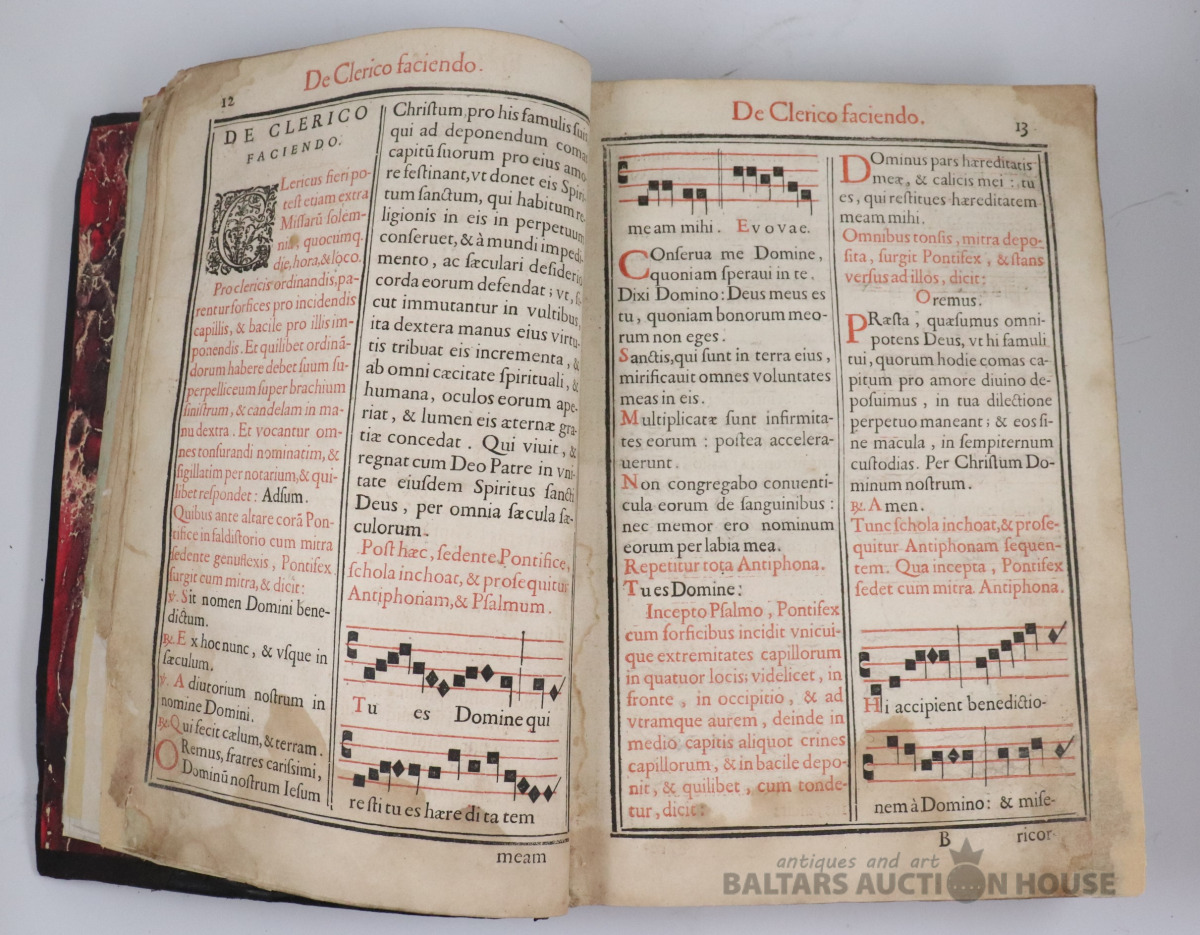 De Clerico faciendo.
12
DE CLERICO
FACIENDO.
CLericus fieri po-
test etiam extra
Missarũ solem-
nia, quocumq.
die, hora, & loco.
Pro clericis ordinandis, pa-
rentur forfices pro incidendis
capillis, & bacile pro illis im-
ponendis. Et quilibet ordinã-
dorum habere debet suum su-
perpelliceum super brachium
sinistrum, & candelam in ma-
nu dextra. Et vocantur om-
nes tonsurandi nominatim, &
sigillatim per notarium, & qui-
libet respondet: Adsum.
Quibus ante altare corã Pon-
tifice in faldistorio cum mitra
sedente genuflexis, Pontifex
surgit cum mitra, & dicit:
℣. Sit nomen Domini bene-
dictum.
℟. Ex hoc nunc, & vsque in
sæculum.
℣. Adiutorium nostrum in
nomine Domini.
℟. Qui fecit cælum, & terram.
ORemus, fratres carissimi,
Dominũ nostrum Iesum
Christum, pro his famulis suis
qui ad deponendum comas
capitũ suorum pro eius amo
re festinant, vt donet eis Spiri-
tum sanctum, qui habitum re-
ligionis in eis in perpetuum
conseruet, & à mundi impedi-
mento, ac sæculari desiderio
corda eorum defendat; vt, si-
cut immutantur in vultibus,
ita dextera manus eius virtu-
tis tribuat eis incrementa, &
ab omni cæcitate spirituali, &
humana, oculos eorum ape-
riat, & lumen eis æternæ gra-
tiæ concedat. Qui viuit, &
regnat cum Deo Patre in vni-
tate eiusdem Spiritus sancti
Deus, per omnia sæcula sæ-
culorum.
Post hæc, sedente Pontifice,
schola inchoat, & prosequitur
Antiphonam, & Psalmum.
Tu es Domine qui
resti tu es hære di ta tem
meam
De Clerico faciendo.
13
meam mihi. Evovae.
COnserua me Domine,
quoniam speraui in te.
Dixi Domino: Deus meus es
tu, quoniam bonorum meo-
rum non eges.
Sanctis, qui sunt in terra eius,
mirificauit omnes voluntates
meas in eis.
Multiplicatæ sunt infirmita-
tes eorum: postea accelera-
uerunt.
Non congregabo conuenti-
cula eorum de sanguinibus:
nec memor ero nominum
eorum per labia mea.
Repetitur tota Antiphona.
Tu es Domine:
Incepto Psalmo, Pontifex
cum forficibus incidit vnicui-
que extremitates capillorum
in quatuor locis; videlicet, in
fronte, in occipitio, & ad
vtramque aurem, deinde in
medio capitis aliquot crines
capillorum, & in bacile depo-
nit, & quilibet, cum tonde-
tur, dicit:
DOminus pars hæreditatis
meæ, & calicis mei: tu
es, qui restitues hæreditatem
meam mihi.
Omnibus tonsis, mitra depo-
sita, surgit Pontifex, & stans
versus ad illos, dicit:
Oremus.
PRæsta, quæsumus omni-
potens Deus, vt hi famuli
tui, quorum hodie comas ca-
pitum pro amore diuino de-
posuimus, in tua dilectione
perpetuo maneant; & eos si-
ne macula, in sempiternum
custodias. Per Christum Do-
minum nostrum.
℟. Amen.
Tunc schola inchoat, & prose-
quitur Antiphonam sequen-
tem. Qua incepta, Pontifex
sedet cum mitra. Antiphona.
Hi accipient benedictio-
nem à Domino: & mise-
B
ricor-
antiques and art
BALTARS AUCTION HOUSE